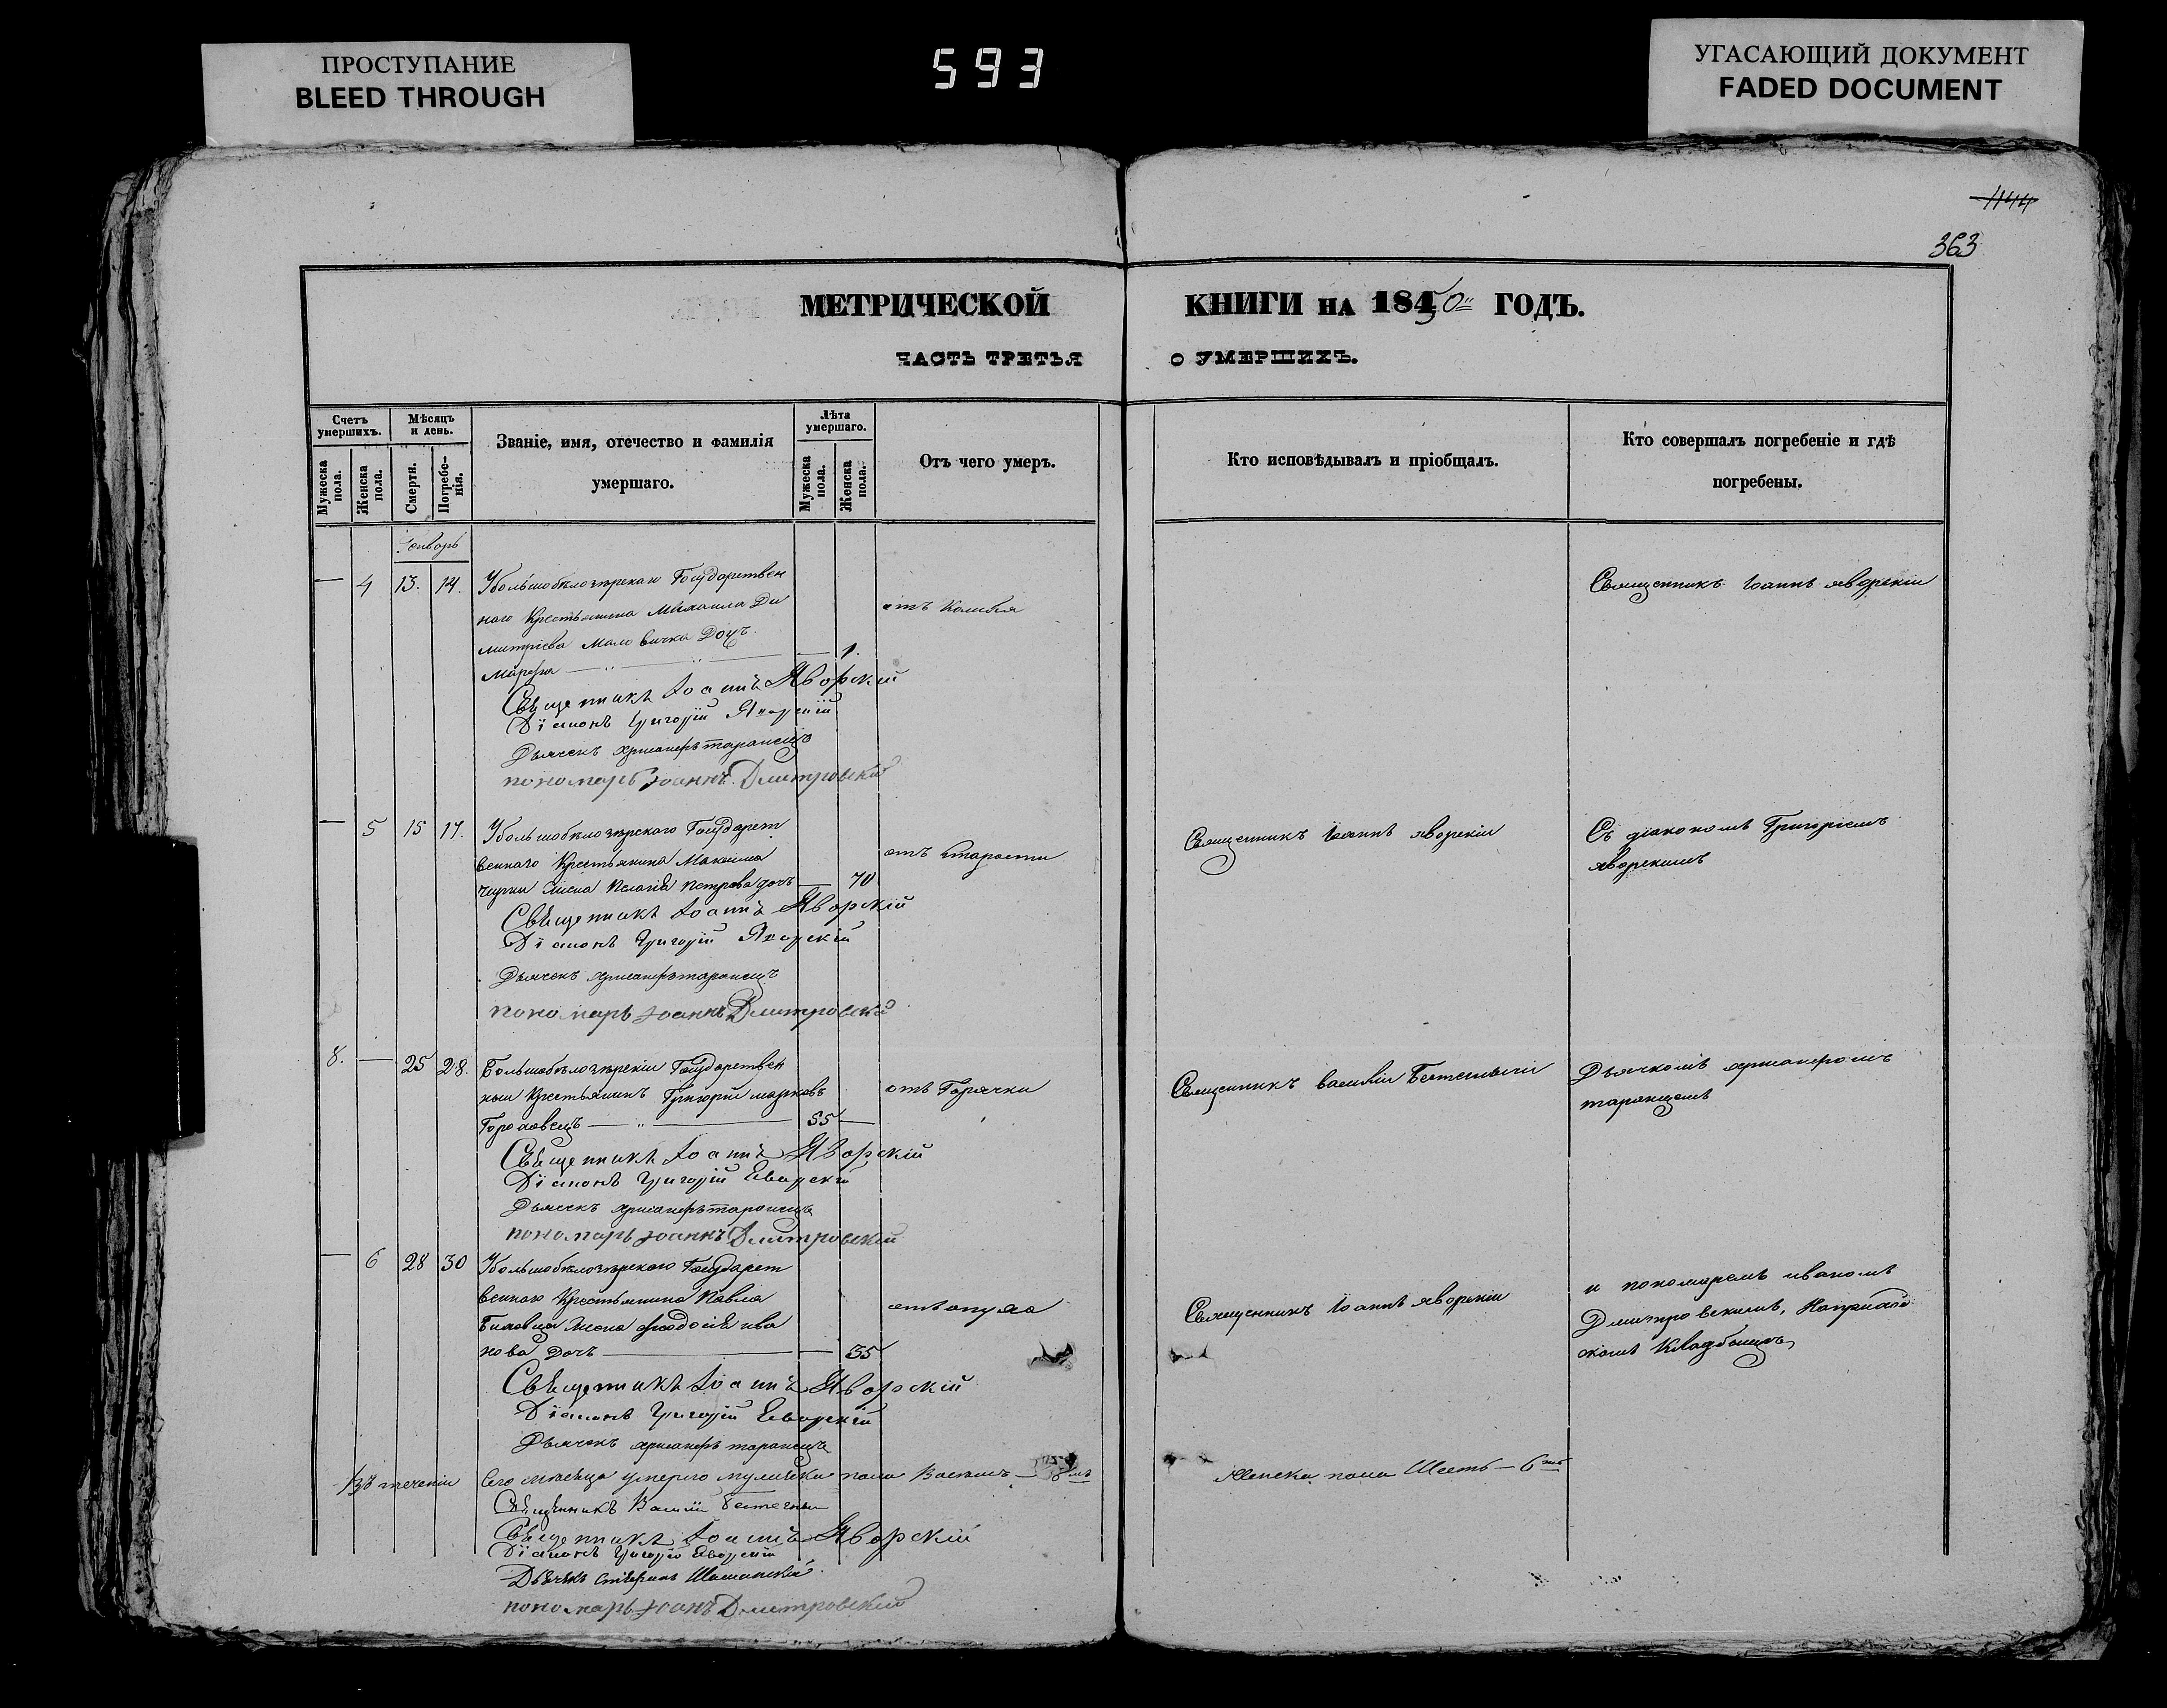 ПРОСТУПАНИЕ
BLEED THROUGH
593
УГАСАЮЩИЙ ДОКУМЕНТ
FADED DOCUMENT
1144
363
МЕТРИЧЕСКОЙ КНИГИ НА 1850 ГОДЪ.
ЧАСТЬ ТРЕТЬЯ О УМЕРШИХЪ.
Счетъ умершихъ.
Мужеска пола.
Женска пола.
Мѣсяцъ и день.
Смерти.
Погребенія.
Званіе, имя, отечество и фамилія
умершаго.
Лѣта умершаго.
Мужеска пола.
Женска пола.
Отъ чего умеръ.
Кто исповѣдывалъ и пріобщалъ.
Кто совершалъ погребеніе и гдѣ
погребены.
Январь
— 4 13. 14. Убольшобѣлозерскаго Государствен
наго Крестьянина Михаила Ди
митріева дочь
Марѳа — 1.
отъ
Священникъ Іоаннъ Яворскій
Священникъ Іоаннъ Яворскій
Діаконъ Григорій Яворскій
Дьячекъ Таранецъ
пономарь Іоаннъ Дмитровскій
— 5 15 17. Убольшобѣлозерскаго Государст
веннаго Крестьянина Максима
жена Пелагія Петрова дочь — 70
отъ старости
Священникъ Іоаннъ Яворскій
Съ діакономъ Григоріемъ
Яворскимъ
Священникъ Іоаннъ Яворскій
Діаконъ Григорій Яворскій
Дьячекъ Таранецъ
пономарь Іоаннъ Дмитровскій
8. — 25 28. Большобѣлозерскій Государствен
ный Крестьянинъ Григорій Марковъ
Гороховецъ — 55 —
отъ Горячки
Священникъ Василій
Дьячкомъ
Таранцемъ
Священникъ Іоаннъ Яворскій
Діаконъ Григорій Еворскій
Дьячекъ Таранецъ
пономарь Іоаннъ Дмитровскій
— 6 28 30 Убольшобѣлозерскаго Государст
веннаго Крестьянина Павла
жена Ѳеодосія Ива
нова дочь — 35
отъ опуха
Священникъ Іоаннъ Яворскій
и пономаремъ Иваномъ
Дмитровскимъ, На
скомъ Кладбищѣ
Священникъ Іоаннъ Яворскій
Діаконъ Григорій Еворскій
Дьячекъ Таранецъ
Въ теченіи сего мѣсяца умерло мужеска пола Восемь — 8мь
Женска пола Шесть — 6ть
Священникъ Василій
Священникъ Іоаннъ Яворскій
Діаконъ Григорій Еворскій
Дьячекъ Стефанъ
пономарь Іоаннъ Дмитровскій